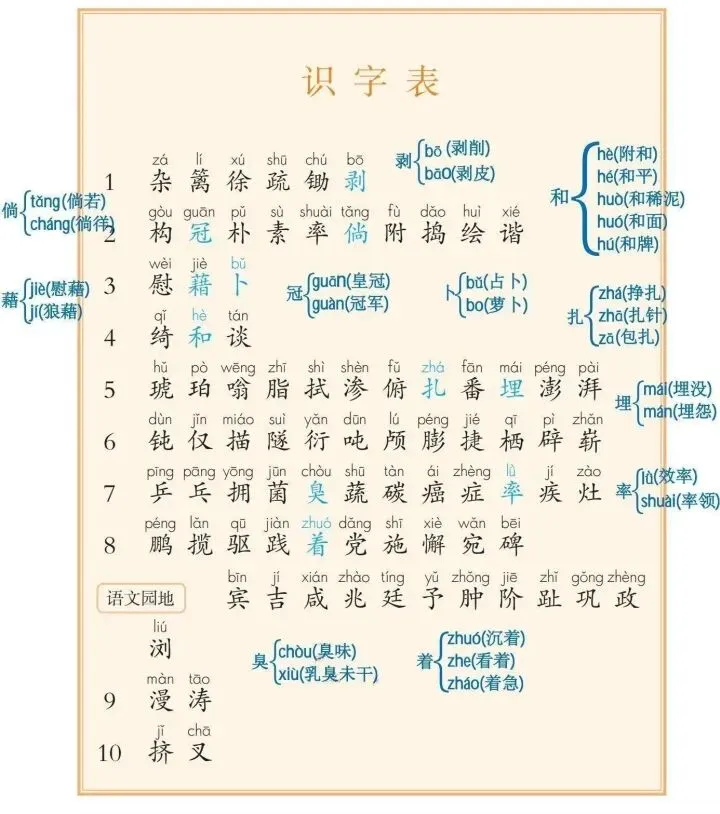 识字表
zá lí xú shū chú bō
1 杂 篱 徐 疏 锄 剥
剥 bō(剥削)
bāo(剥皮)
和 hè(附和)
hé(和平)
huò(和稀泥)
huó(和面)
hú(和牌)
倘 tǎng(倘若)
cháng(倘徉)
gòu guān pǔ sù shuài tǎng fù dǎo huì xié
2 构 冠 朴 素 率 倘 附 捣 绘 谐
wèi jiè bǔ
3 慰 藉 卜
藉 jiè(慰藉)
jí(狼藉)
冠 guān(皇冠)
guàn(冠军)
卜 bǔ(占卜)
bo(萝卜)
扎 zhá(挣扎)
zhā(扎针)
zā(包扎)
qǐ hè tán
4 绮 和 谈
hǔ pò wēng zhī shì shèn fǔ zhá fān mái péng pài
5 琥 珀 嗡 脂 拭 渗 俯 扎 番 埋 澎 湃
埋 mái(埋没)
mán(埋怨)
dùn jǐn miáo suì yǎn dūn lú péng jié qī pì zhǎn
6 钝 仅 描 隧 衍 吨 颅 膨 捷 栖 辟 崭
pīng pāng yōng jūn chòu shū tàn ái zhèng lǜ jí zào
7 乒 乓 拥 菌 臭 蔬 碳 癌 症 率 疾 灶
率 lǜ(效率)
shuài(率领)
péng lǎn qū jiàn zhuó dǎng shī xiè wǎn bēi
8 鹏 揽 驱 践 着 党 施 懈 宛 碑
bīn jí xián zhào tíng yǔ zhǒng jiē zhǐ gǒng zhèng
语文园地 宾 吉 咸 兆 廷 予 肿 阶 趾 巩 政
liú
浏
臭 chòu(臭味)
xiù(乳臭未干)
着 zhuó(沉着)
zhe(看着)
zháo(着急)
màn tāo
9 漫 涛
jǐ chā
10 挤 叉